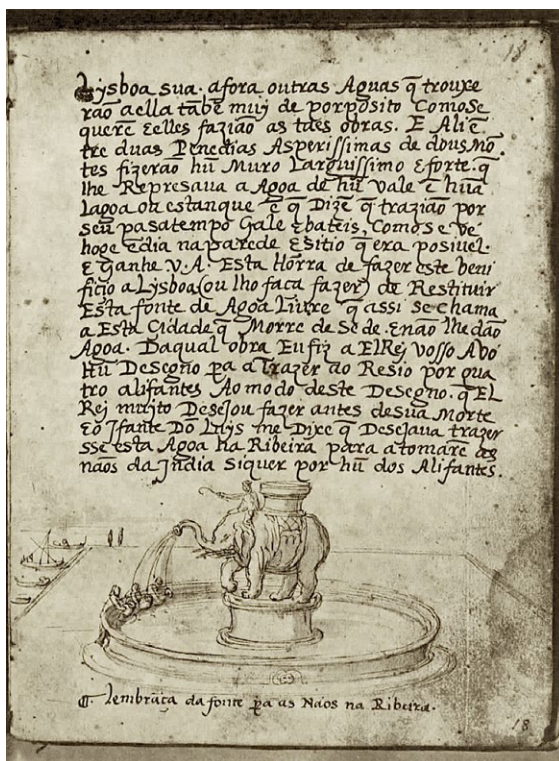 18
Lysboa sua. afora outras Aguas q̃ trouxe
rão aella tãbẽ muy de porpósito ComoSe
querẽ Eelles fazião as taes obras. E Ali ẽ
tre duas Penedias Asperissimas de dous Mõ
tes fizerão hũ Muro Larguissimo & forte. q̃
lhe Represaua a Agoa de hũ Vale ẽ hũa
Lagoa ou estanque ẽ q̃ Dizẽ q̃ trazião por
seu pasatempo Gale & bateis, Como se vé
hoge ẽ dia na parede & sitio q̃ era posiuel.
E Ganhe V.A. Esta Hõrra de fazer este beni
ficio a Lysboa (ou lho faca fazer) de Restituir
Esta fonte de Agoa Liure q̃ assi se chama
a Esta Cidade q̃ Morre de Sede. Enão lhe dão
Agoa. Daqual obra Eu fiz a ElRej vosso Avo
Hũ Desegno pa a Trazer ao Resio por qua
tro alifantes Ao modo deste Desegno. q̃ EL
Rej mujto Desejou fazer antes desua Morte
Eo Jfante Do Luys me Dixe q̃ Desejava trazer
sse esta Agoa ha Ribeira para a tomarẽ as
nãos da Jndia siquer por hũ dos Alifantes.
¶. lembrãça da fonte pa as Naos na Ribeira.
18